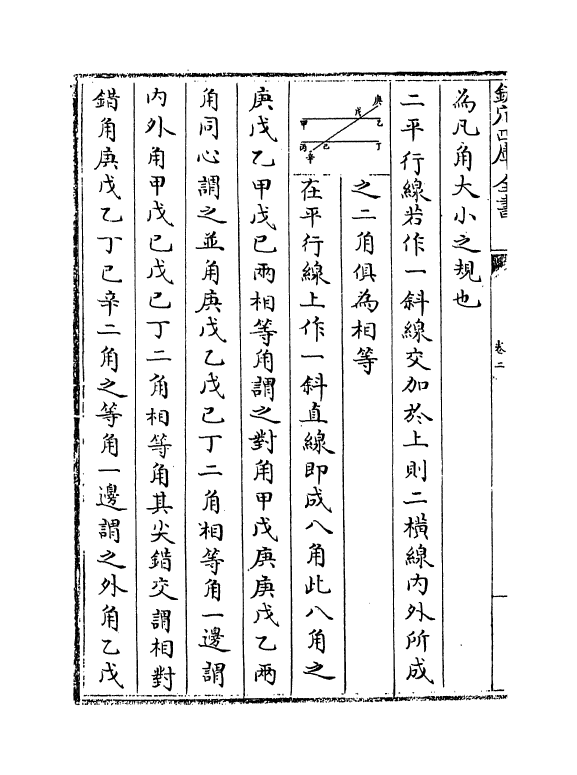 欽定四庫全書
卷二
為凡角大小之規也
二平行線若作一斜線交加於上則二橫線內外所成
之二角俱為相等
庚
戊
甲
乙
丙
己
丁
辛
在平行線上作一斜直線即成八角此八角之
庚戊乙甲戊己兩相等角謂之對角甲戊庚庚戊乙兩
角同心謂之並角庚戊乙戊己丁二角相等角一邊謂
內外角甲戊己戊己丁二角相等角其尖錯交謂相對
錯角庚戊乙丁己辛二角之等角一邊謂之外角乙戊